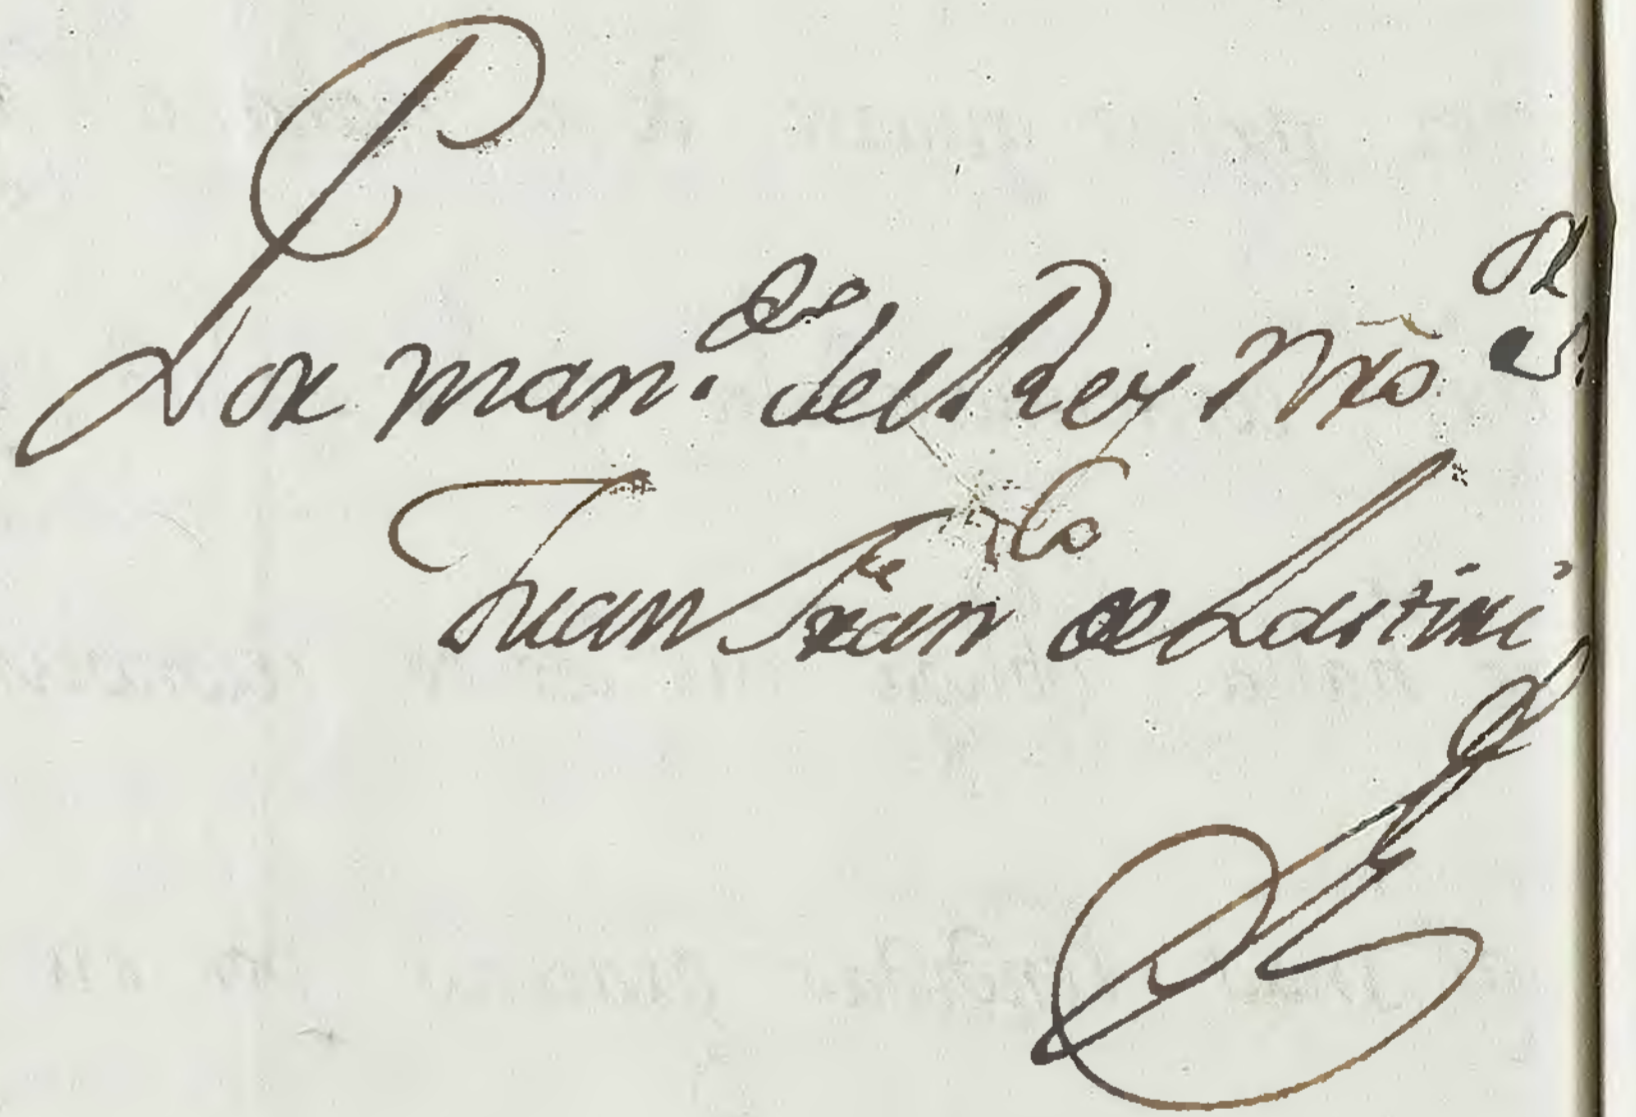 Por man.do del Rey Nr̃o S.or
Juan Fran.co de Lastiri